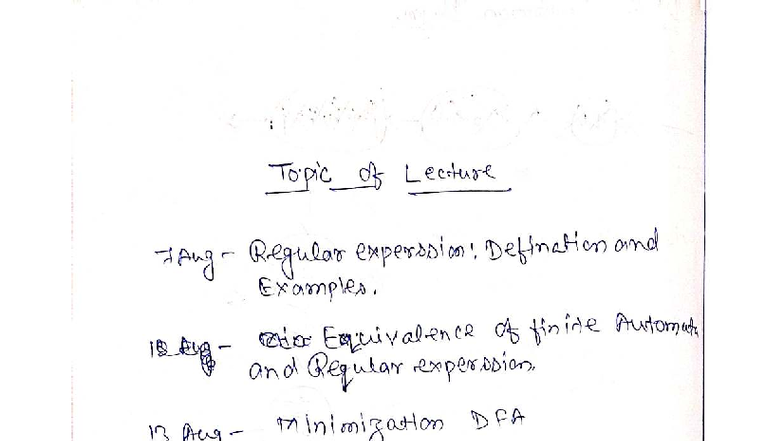 Topic of Lecture
7 Aug - Regular experssion: Defination and
Examples.
Equivalence of finite Automata
and Regular experssion.
13 Aug - Minimization DFA